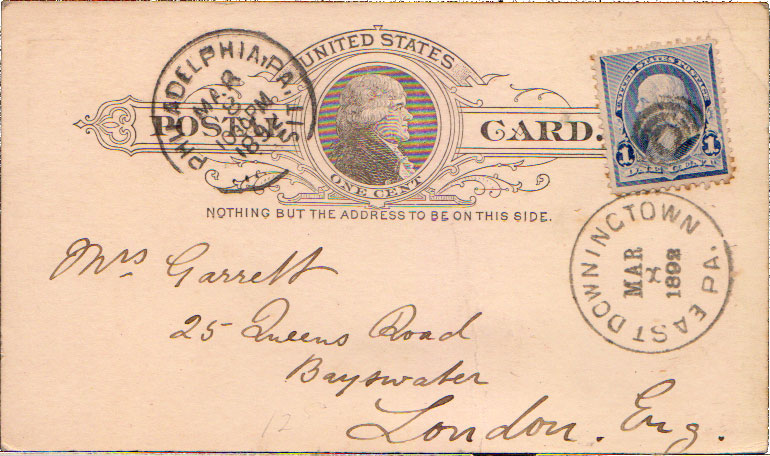 UNITED STATES
POSTAL CARD.
ONE CENT
NOTHING BUT THE ADDRESS TO BE ON THIS SIDE.
PHILADELPHIA, PA.
MAR
PM
1892
UNITED STATES POSTAGE
1 1
ONE CENT
EAST DOWNINGTOWN PA.
MAR
1892
Mrs Garrett
25 Queens Road
Bayswater
London. Eng.
12